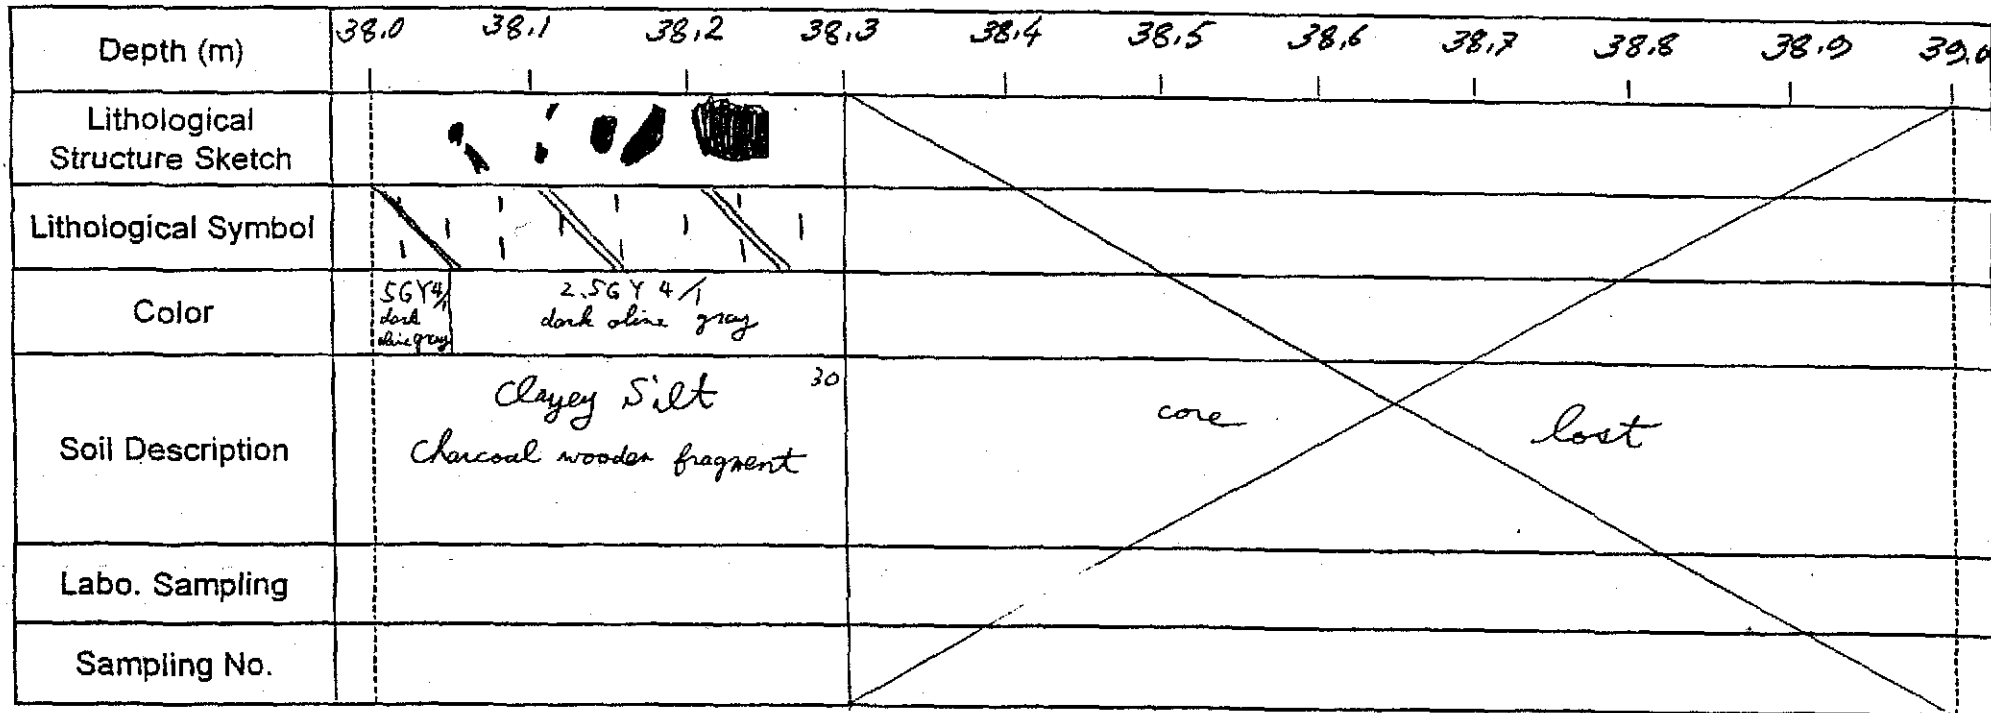 Depth (m) 38.0 38.1 38.2 38.3 38.4 38.5 38.6 38.7 38.8 38.9 39.0
Lithological
Structure Sketch
Lithological Symbol
Color
5GY4/1
dark
olive gray
2.5GY 4/1
dark olive gray
Soil Description
Clayey Silt
30
Charcoal wooden fragment
core lost
Labo. Sampling
Sampling No.